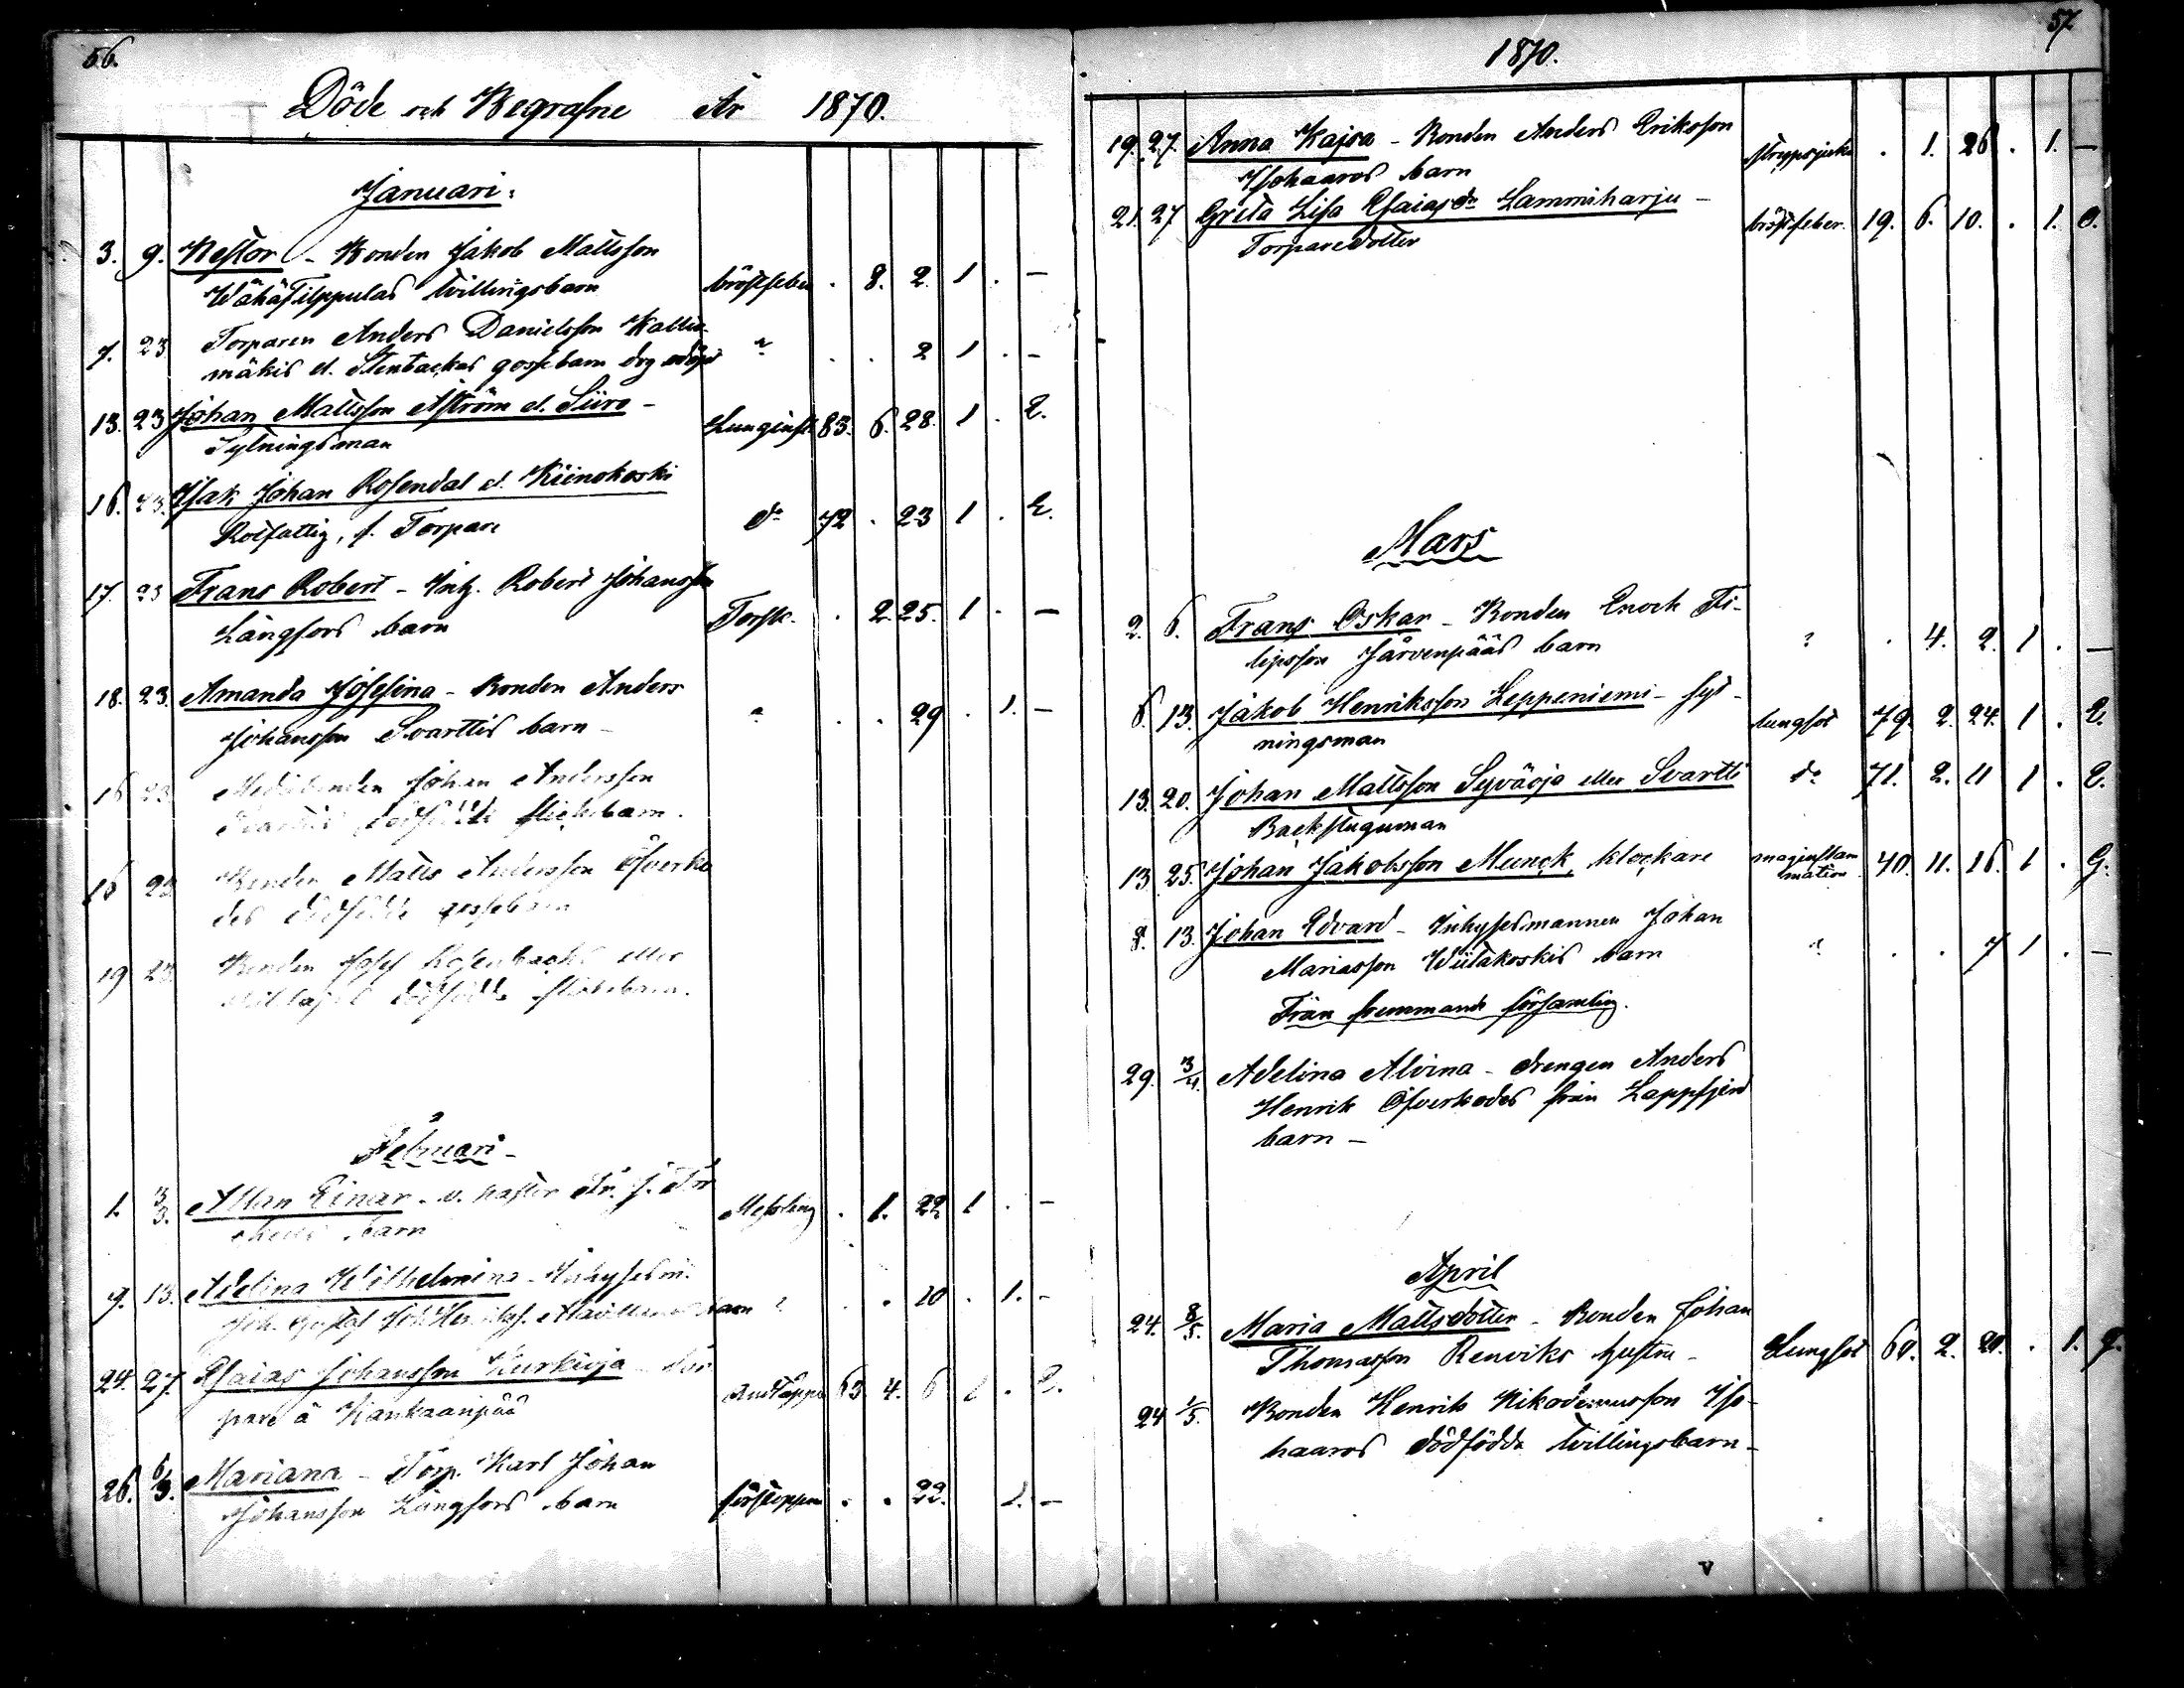 56.
Döde och Begrafne År 1870.
Januari:
3. 9. Nestor - Bonden Jakob Mattsson
WähäFilppulas tvillingsbarn bröstfeber . 8. 2. 1 . —
7. 23 Torparen Anders Danielsson Kallio-
mäkis el. Stenbackas gossebarn dog odöpt . . 2 1 . —
13. 23 Johan Mattsson Åström el. Siiro -
Sytningsman Lunginfl. 83. 6. 28. 1 . E.
16. 23. Isak Johan Rosendal el. Kiinokoski
Rotfattig, f. Torpare do 72 . 23 1 . E.
17. 23 Frans Robert - Inh. Robert Johansson
Långfors barn Torsk. . 2. 25. 1 . —
18. 23. Amanda Josefina - Bonden Anders
Johansson Svarttis barn - . . 29 . 1. —
16 23. Johan Andersson
dödfödde flickebarn.
16 23. Bonden Matts Andersson Öfverko
des dödfödde gossebarn
19 23. Bonden Josef eller
dödfödde
Februari -
1. 3/3. Allan Einar -
barn Messling . 1. 22 1 . —
9. 13. Adelina Wilhelmina - Inhysesm.
Joh. Gustaf barn . . 20 . 1. -
24. 27. Esaias Johansson Kurkioja - Tor
pare å Kankaanpää Andtäppa 63. 4. 6 1 . E.
26. 6/3. Mariana - Torp. Karl Johan
Johansson Långfors barn förstoppn . . 22. 1. —
57.
1870.
19. 27. Anna Kajsa - Bonden Anders Eriksson
Isohaaros barn strypsjuka . 1. 26 . 1. —
21. 27 Greta Lisa Esaiasdr Lammiharju -
Torparedotter bröstfeber. 19. 6. 10. . 1. O.
Mars
2. 6. Frans Oskar - Bonden Enoch Fi-
lipsson Järvenpääs barn ? . 4. 2. 1 . —
6. 13. Jakob Henriksson Leppeniemi - Syt-
ningsman lungsot 79. 2. 24. 1 . E.
13. 20. Johan Mattsson Syväoja eller Svartti do 71. 2. 11 1 . E.
Backstuguman
13. 25. Johan Jakobsson Munck, klockare maginflam
mation 40. 11. 16. 1 . G.
8. 13. Johan Edvard - Inhysesmannen Johan
Mariasson Wiitakoskis barn . . 7 1 . —
Från fremmande församling.
29. 3/4. Adelina Alvina - drengen Anders
Henrik Öfverkodes från Lappfjerd
barn -
April
24. 8/5. Maria Mattsdotter - Bonden Johan
Thomasson Renviks hustru - Lungsot 60. 2. 20. . 1. G.
24 1/5. Bonden Henrik Nikodemusson Iso-
haaros dödfödda tvillingsbarn -